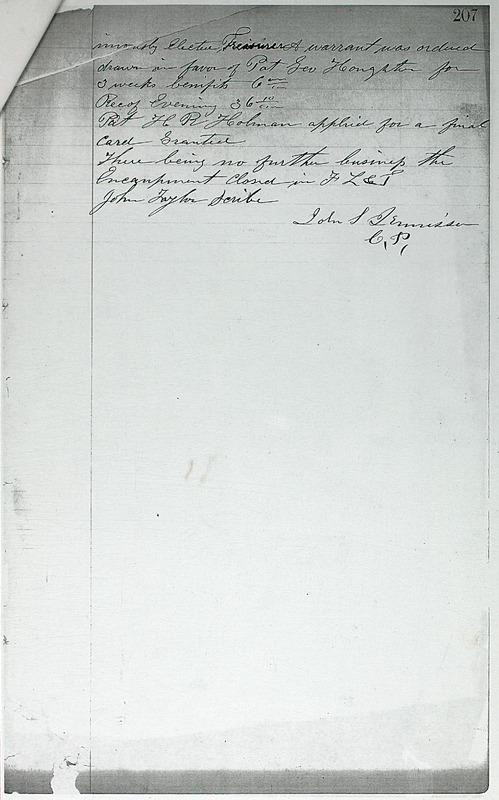 207
imously Elected Treasurer A warrant was ordered
drawn in favor of Pat Geo Houghton for
3 weeks benefits 6
Recpt Evening 36 10/100
Pat H R Holman applied for a final
Card Granted
There being no further business the
Encampment Closed in F L & T
John Taylor Scribe
John S Dennison
C, P,